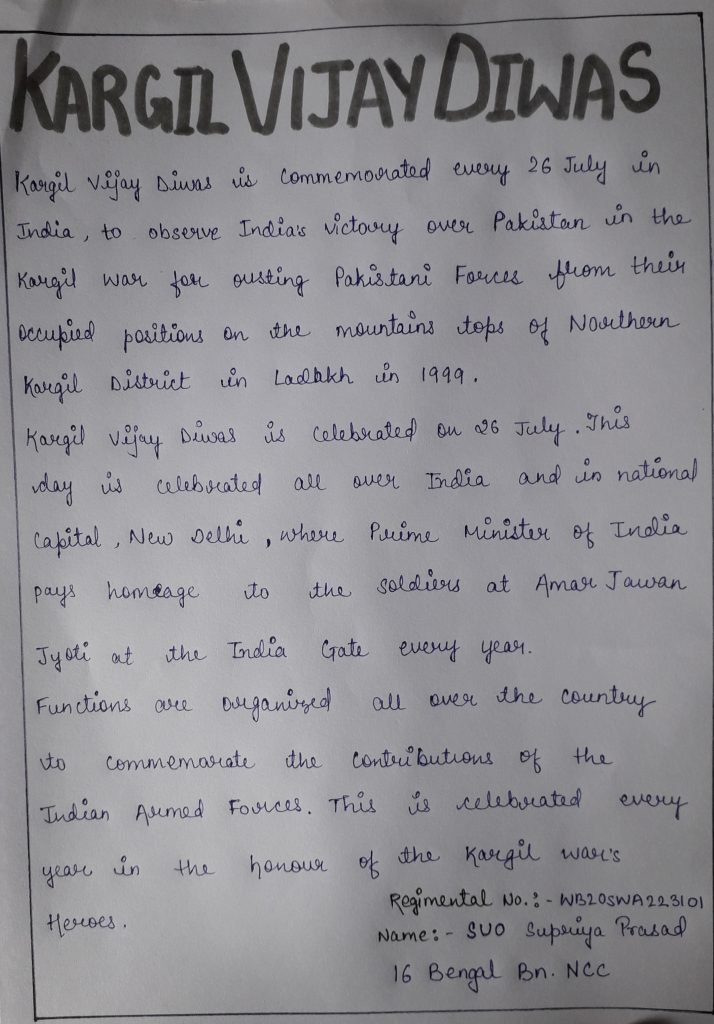 KARGIL VIJAY DIWAS
Kargil Vijay Diwas is commemorated every 26 July in
India, to observe India's victory over Pakistan in the
Kargil War for ousting Pakistani Forces from their
occupied positions on the mountains tops of Northern
Kargil District in Ladakh in 1999.
Kargil Vijay Diwas is celebrated on 26 July. This
day is celebrated all over India and in national
Capital, New Delhi, where Prime Minister of India
pays homeage to the soldiers at Amar Jawan
Jyoti at the India Gate every year.
Functions are organized all over the country
to commemarate the contributions of the
Indian Armed Forces. This is celebrated every
year in the honour of the Kargil war's
Heroes.
Regimental No.:- WB20SWA223101
Name:- SUO Supriya Prasad
16 Bengal Bn. NCC